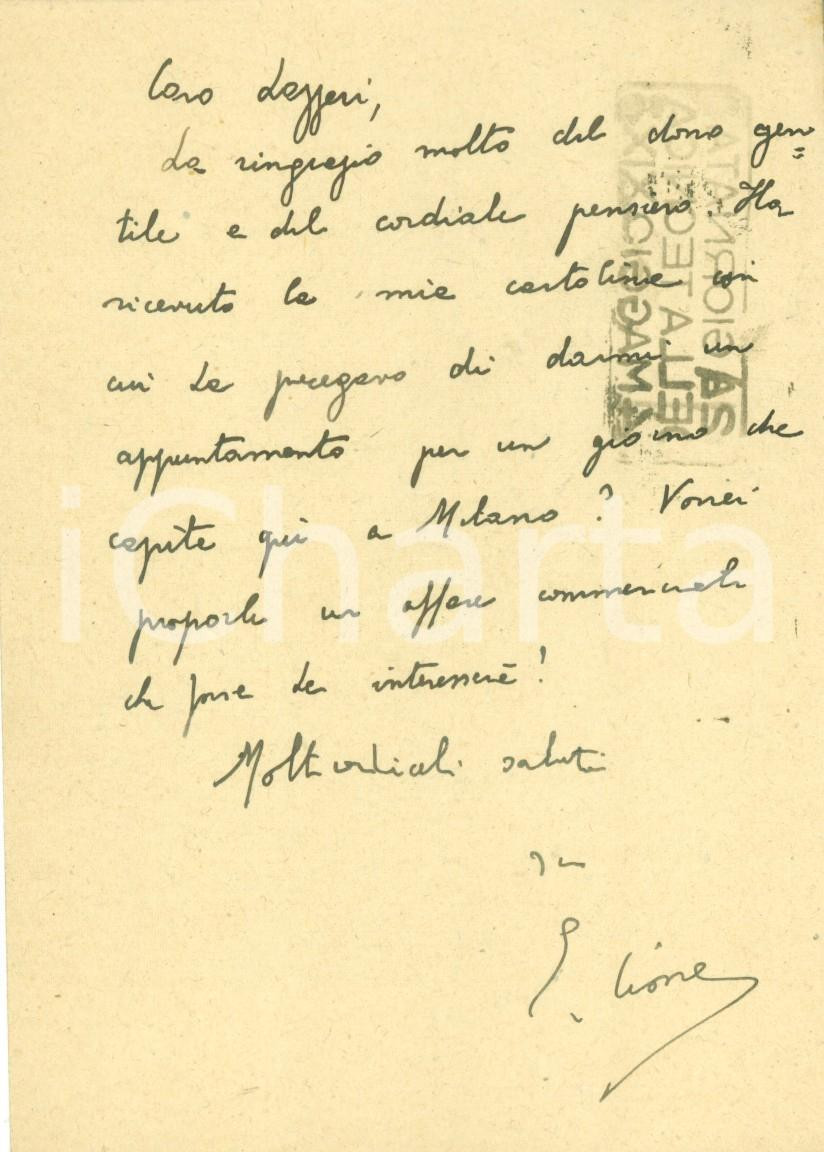 Caro Lazzeri,
La ringrazio molto del dono gen=
tile e del cordiale pensiero. Ha
ricevuto la mia cartolina con
cui La pregavo di darmi un
appuntamento per un giorno che
capita qui a Milano? Vorrei
proporle un affare commerciale
che forse La interesserà!
Molti cordiali saluti
E. Cione
GIORNATA
DELLA TECNICA
4 MAGGIO XIX
iCharta